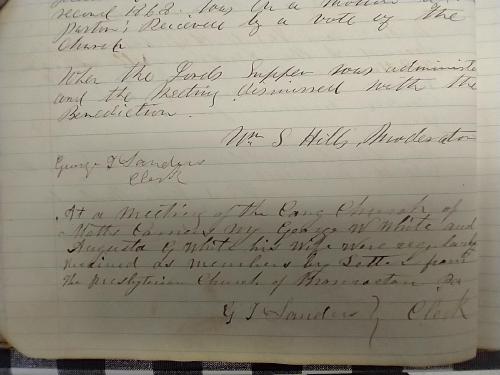 record 1862. was on a motion of
pastor; Received by a vote of the
Church.
When the Lords Supper was administe
and the Meeting dismissed with the
Benediction.
Wm S Hills, Moderator
George T Sanders
Clerk
At a Meeting of the Cong Church of
Motts Corners Ny George W White and
Augusta White his Wife were regularly
Received as members by Letter from
the Presbyterian Church of
G T Sanders } Clerk